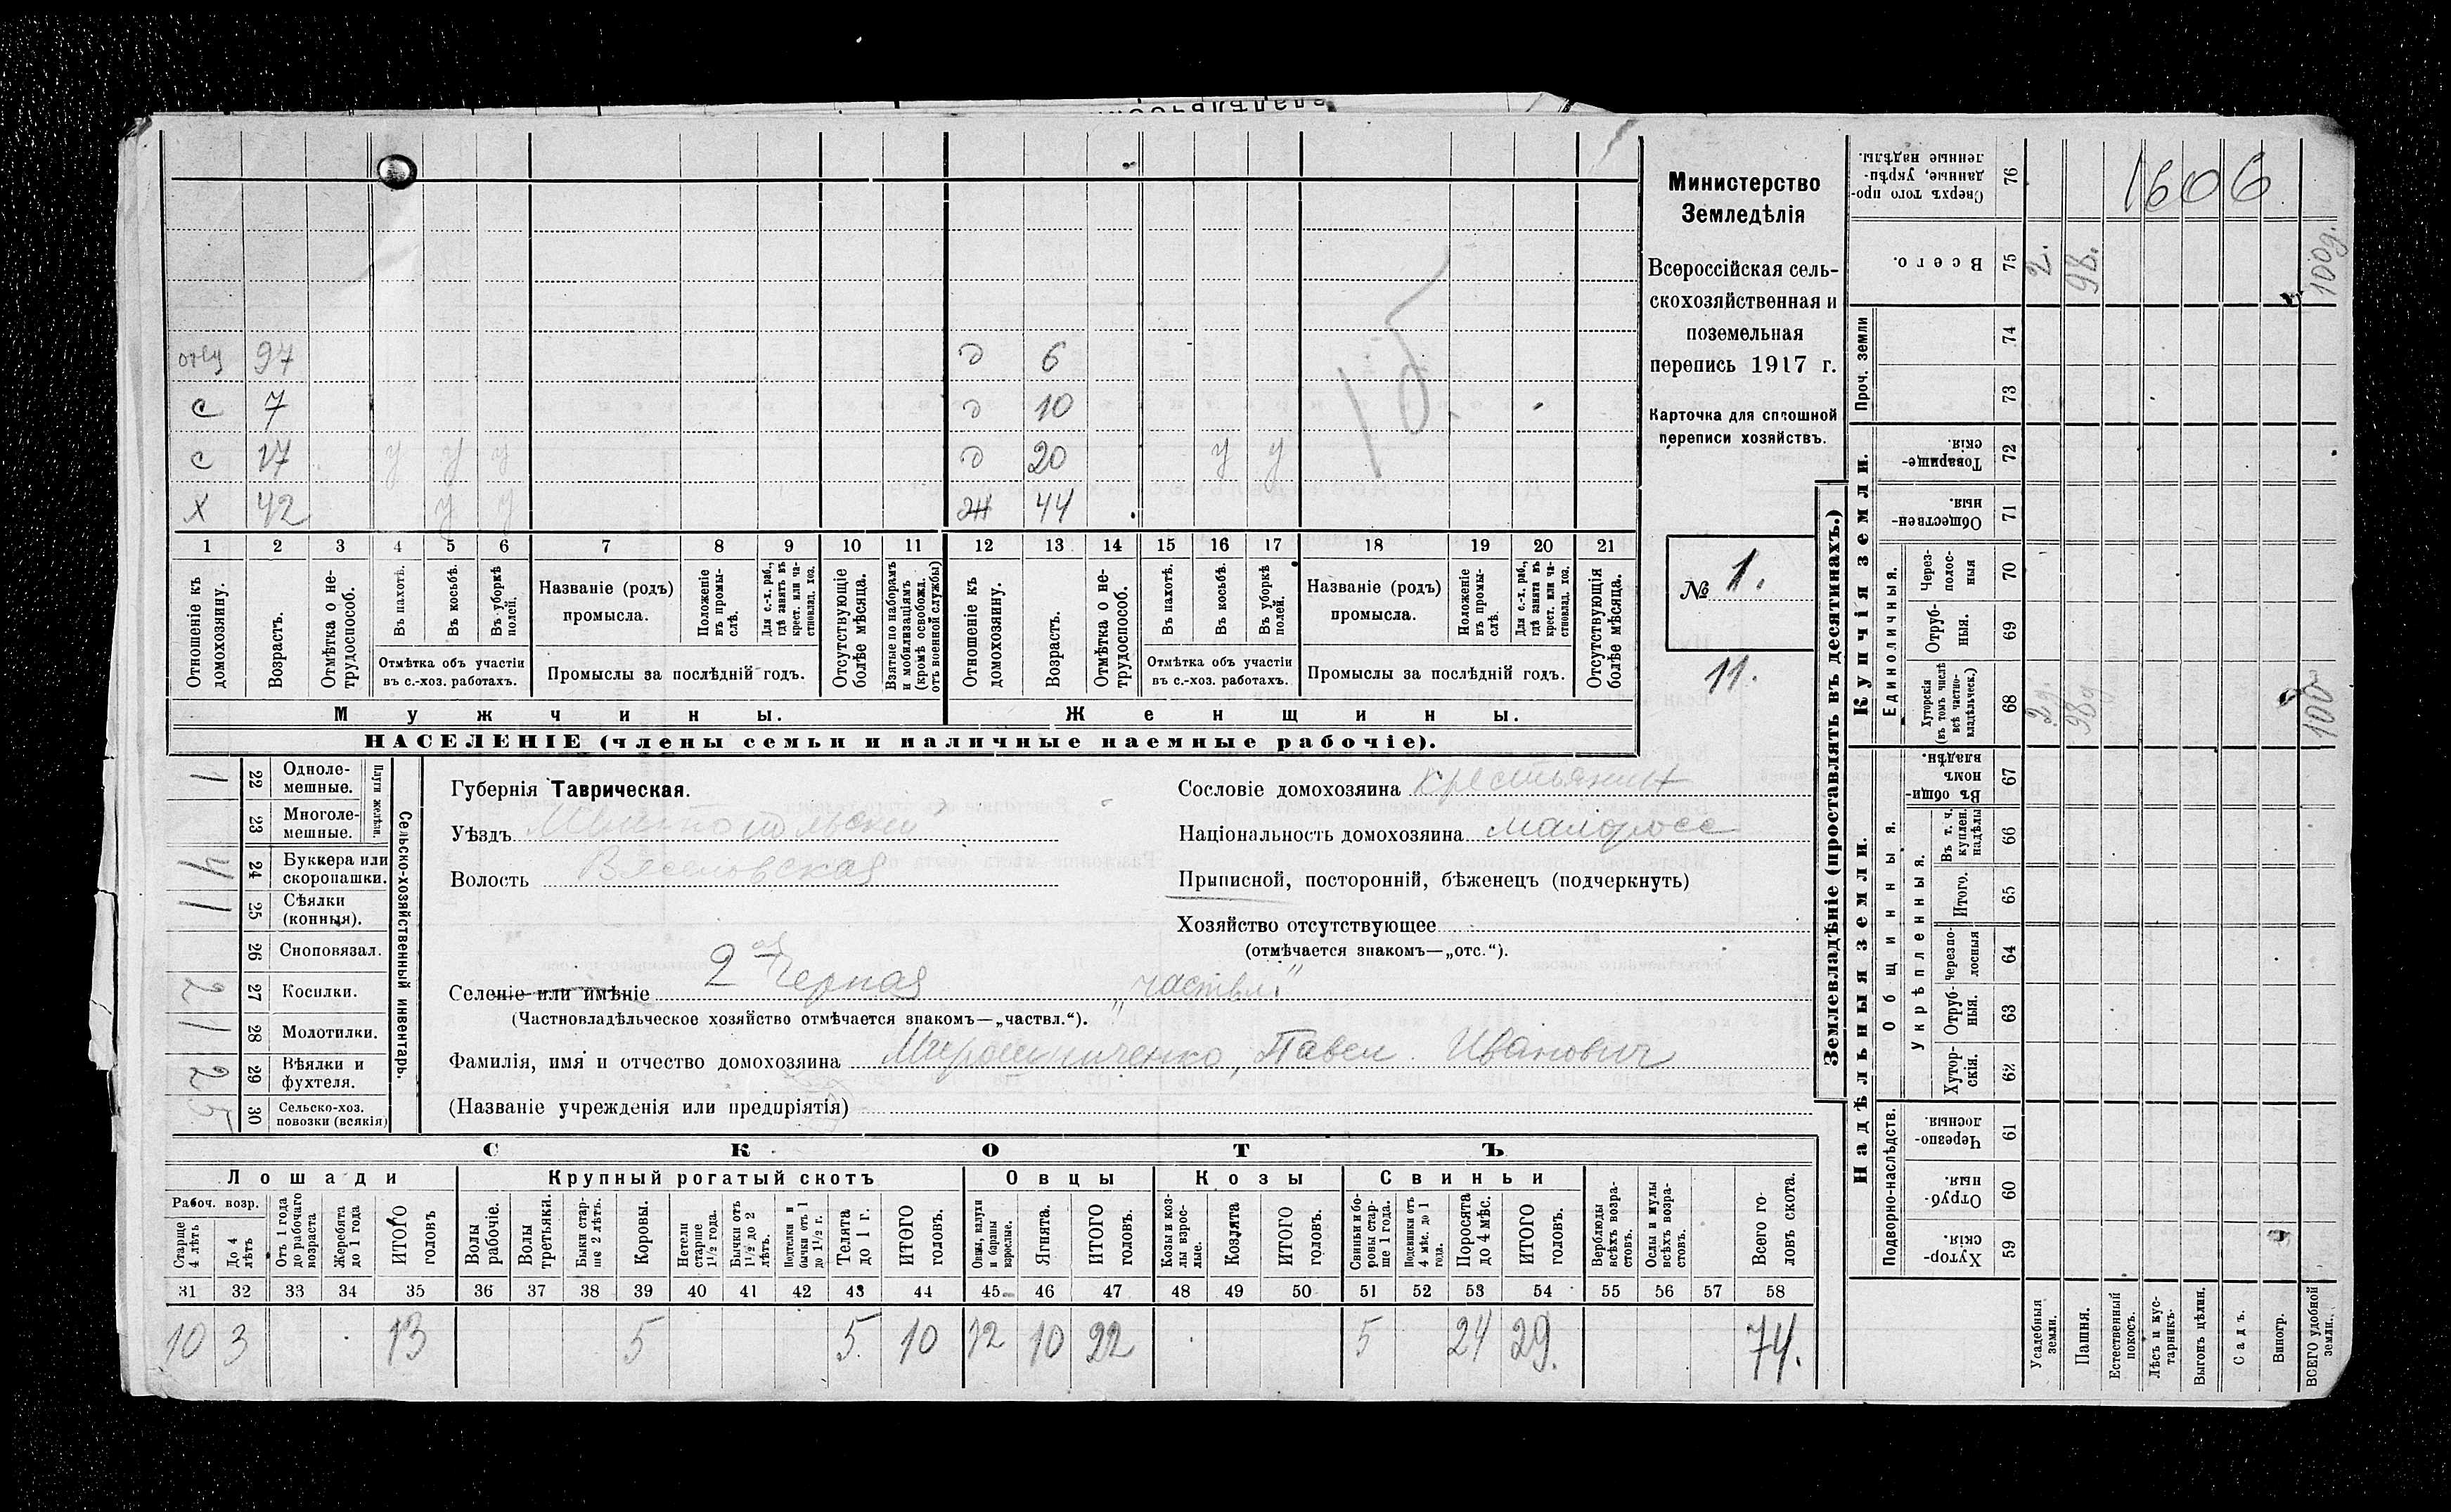 отец 94 д 6
с 7 д 10
с 17 у у у д 20 у у
х 42 у у ж 44
15.
1 2 3 4 5 6 7 8 9 10 11 12 13 14 15 16 17 18 19 20 21
Отношеніе къ домохозяину.
Возрастъ.
Отмѣтка о нетрудоспособ.
Въ пахотѣ.
Въ косьбѣ.
Въ уборкѣ полей.
Отмѣтка объ участіи въ с.-хоз. работахъ.
Названіе (родъ) промысла.
Положеніе въ промыслѣ.
Для с.-х. раб., гдѣ занятъ въ крест. или частновлад. хоз.
Промыслы за послѣдній годъ.
Отсутствующіе болѣе мѣсяца.
Взятые по наборамъ и мобилизаціямъ (кромѣ освобожд. отъ военной службы)
Отношеніе къ домохозяину.
Возрастъ.
Отмѣтка о нетрудоспособ.
Въ пахотѣ.
Въ косьбѣ.
Въ уборкѣ полей.
Отмѣтка объ участіи въ с.-хоз. работахъ.
Названіе (родъ) промысла.
Положеніе въ промыслѣ.
Для с.-х. раб., гдѣ занята въ крест. или частновлад. хоз.
Промыслы за послѣдній годъ.
Отсутствующія болѣе мѣсяца.
Мужчины. Женщины.
НАСЕЛЕНІЕ (члены семьи и наличные наемные рабочіе).
Министерство
Земледѣлія
Всероссійская сель-
скохозяйственная и
поземельная
перепись 1917 г.
Карточка для сплошной
переписи хозяйствъ.
№ 1.
11.
Сельско-хозяйственный инвентарь.
Плуги желѣзн.
1 22 Одноле-
мешные.
23 Многоле-
мешные.
4 24 Буккера или
скоропашки.
1 25 Сѣялки
(конныя).
26 Сноповязал.
2 27 Косилки.
1 28 Молотилки.
2 29 Вѣялки и
фухтеля.
5 30 Сельско-хоз.
повозки (всякія)
Губернія Таврическая.
Уѣздъ Мелитопольский
Волость Веселовская
Селеніе или имѣніе 2ая Черная „частвл.“
(Частновладѣльческое хозяйство отмѣчается знакомъ—„частвл.“).
Фамилія, имя и отчество домохозяина Мирошниченко, Павел Иванович
(Названіе учрежденія или предпріятія)
Сословіе домохозяина крестьянин
Національность домохозяина малоросс
Приписной, посторонній, бѣженецъ (подчеркнуть)
Хозяйство отсутствующее
(отмѣчается знакомъ—„отс.“).
СКОТЪ
Лошади Крупный рогатый скотъ Овцы Козы Свиньи
Рабоч. возр.
Старше 4 лѣтъ
До 4 лѣтъ
Отъ 1 года до рабочаго возраста
Жеребята до 1 года
ИТОГО головъ
Волы рабочіе.
Волы третьяки.
Быки старше 2 лѣтъ.
Коровы.
Нетели старше 1½ года.
Бычки отъ 1½ до 2 лѣтъ.
Подтелки и бычки отъ 1 до 1½ г.
Телята до 1 г.
ИТОГО головъ.
Овцы, валухи и бараны взрослые.
Ягнята.
ИТОГО головъ.
Козы и козлы взрослые.
Козлята
ИТОГО головъ.
Свиньи и боровы старше 1 года.
Подсвинки отъ 4 мѣс. до 1 года.
Поросята до 4 мѣс.
ИТОГО головъ.
Верблюды всѣхъ возрастовъ.
Ослы и мулы всѣхъ возрастовъ.
Всего головъ скота.
31 32 33 34 35 36 37 38 39 40 41 42 43 44 45 46 47 48 49 50 51 52 53 54 55 56 57 58
10 3 13 5 5 10 12 10 22 5 24 29. 74.
Землевладѣніе (проставлять въ десятинахъ.)
Надѣльныя земли. Купчія земли. Проч. земли
Подворно-наслѣдств.
Общинныя.
Укрѣпленныя.
Единоличныя.
76 Сверхъ того проданные, укрѣпленные надѣлы. 1606
75 Всего. 2. 98. 100д.
74
73
72 Товарищескія.
71 Общественныя.
70 Черезполосныя
69 Отрубныя.
68 Хуторскія (въ томъ числѣ всѣ частновладѣльческ.) 2д. 98д. 100
67 Въ общинномъ владѣн.
66 Въ т. ч. куплен. надѣлы
65 Итого.
64 Черезполосныя
63 Отрубныя.
62 Хуторскія.
61 Черезполосныя.
60 Отрубныя.
59 Хуторскія.
Усадебныя земли.
Пашня.
Естественный покосъ.
Лѣсъ и кустарникъ.
Выгонъ цѣлин.
Садъ.
Виногр.
ВСЕГО удобной земли.